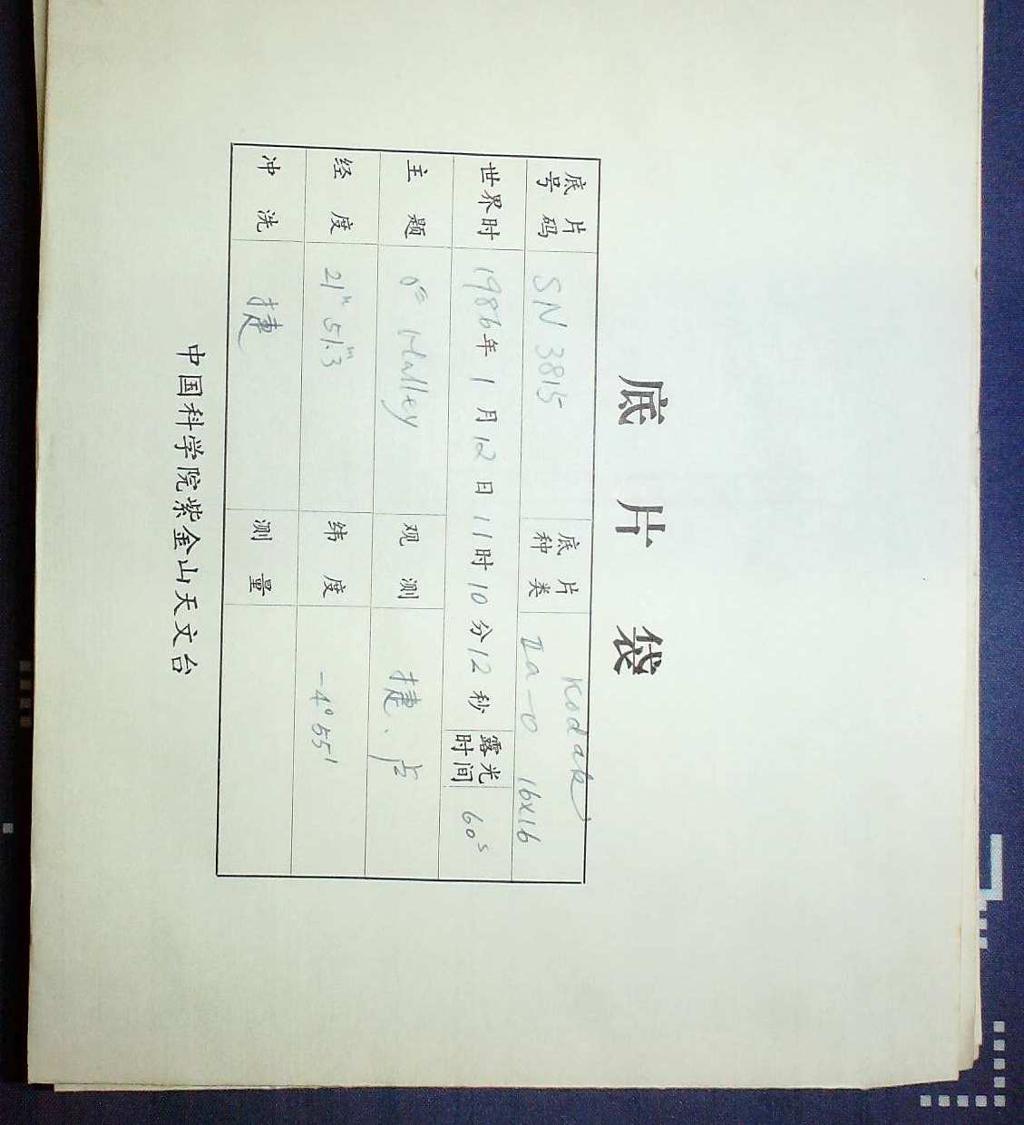 底片袋
底片号码 SN 3815 底片种类 Kodak IIa-O 16x16
世界时 1986年1月12日11时10分12秒 露光时间 60s
主题 Halley 观测 捷、卢
经度 21h 51m.3 纬度 -4°55'
冲洗 捷 测量
中国科学院紫金山天文台